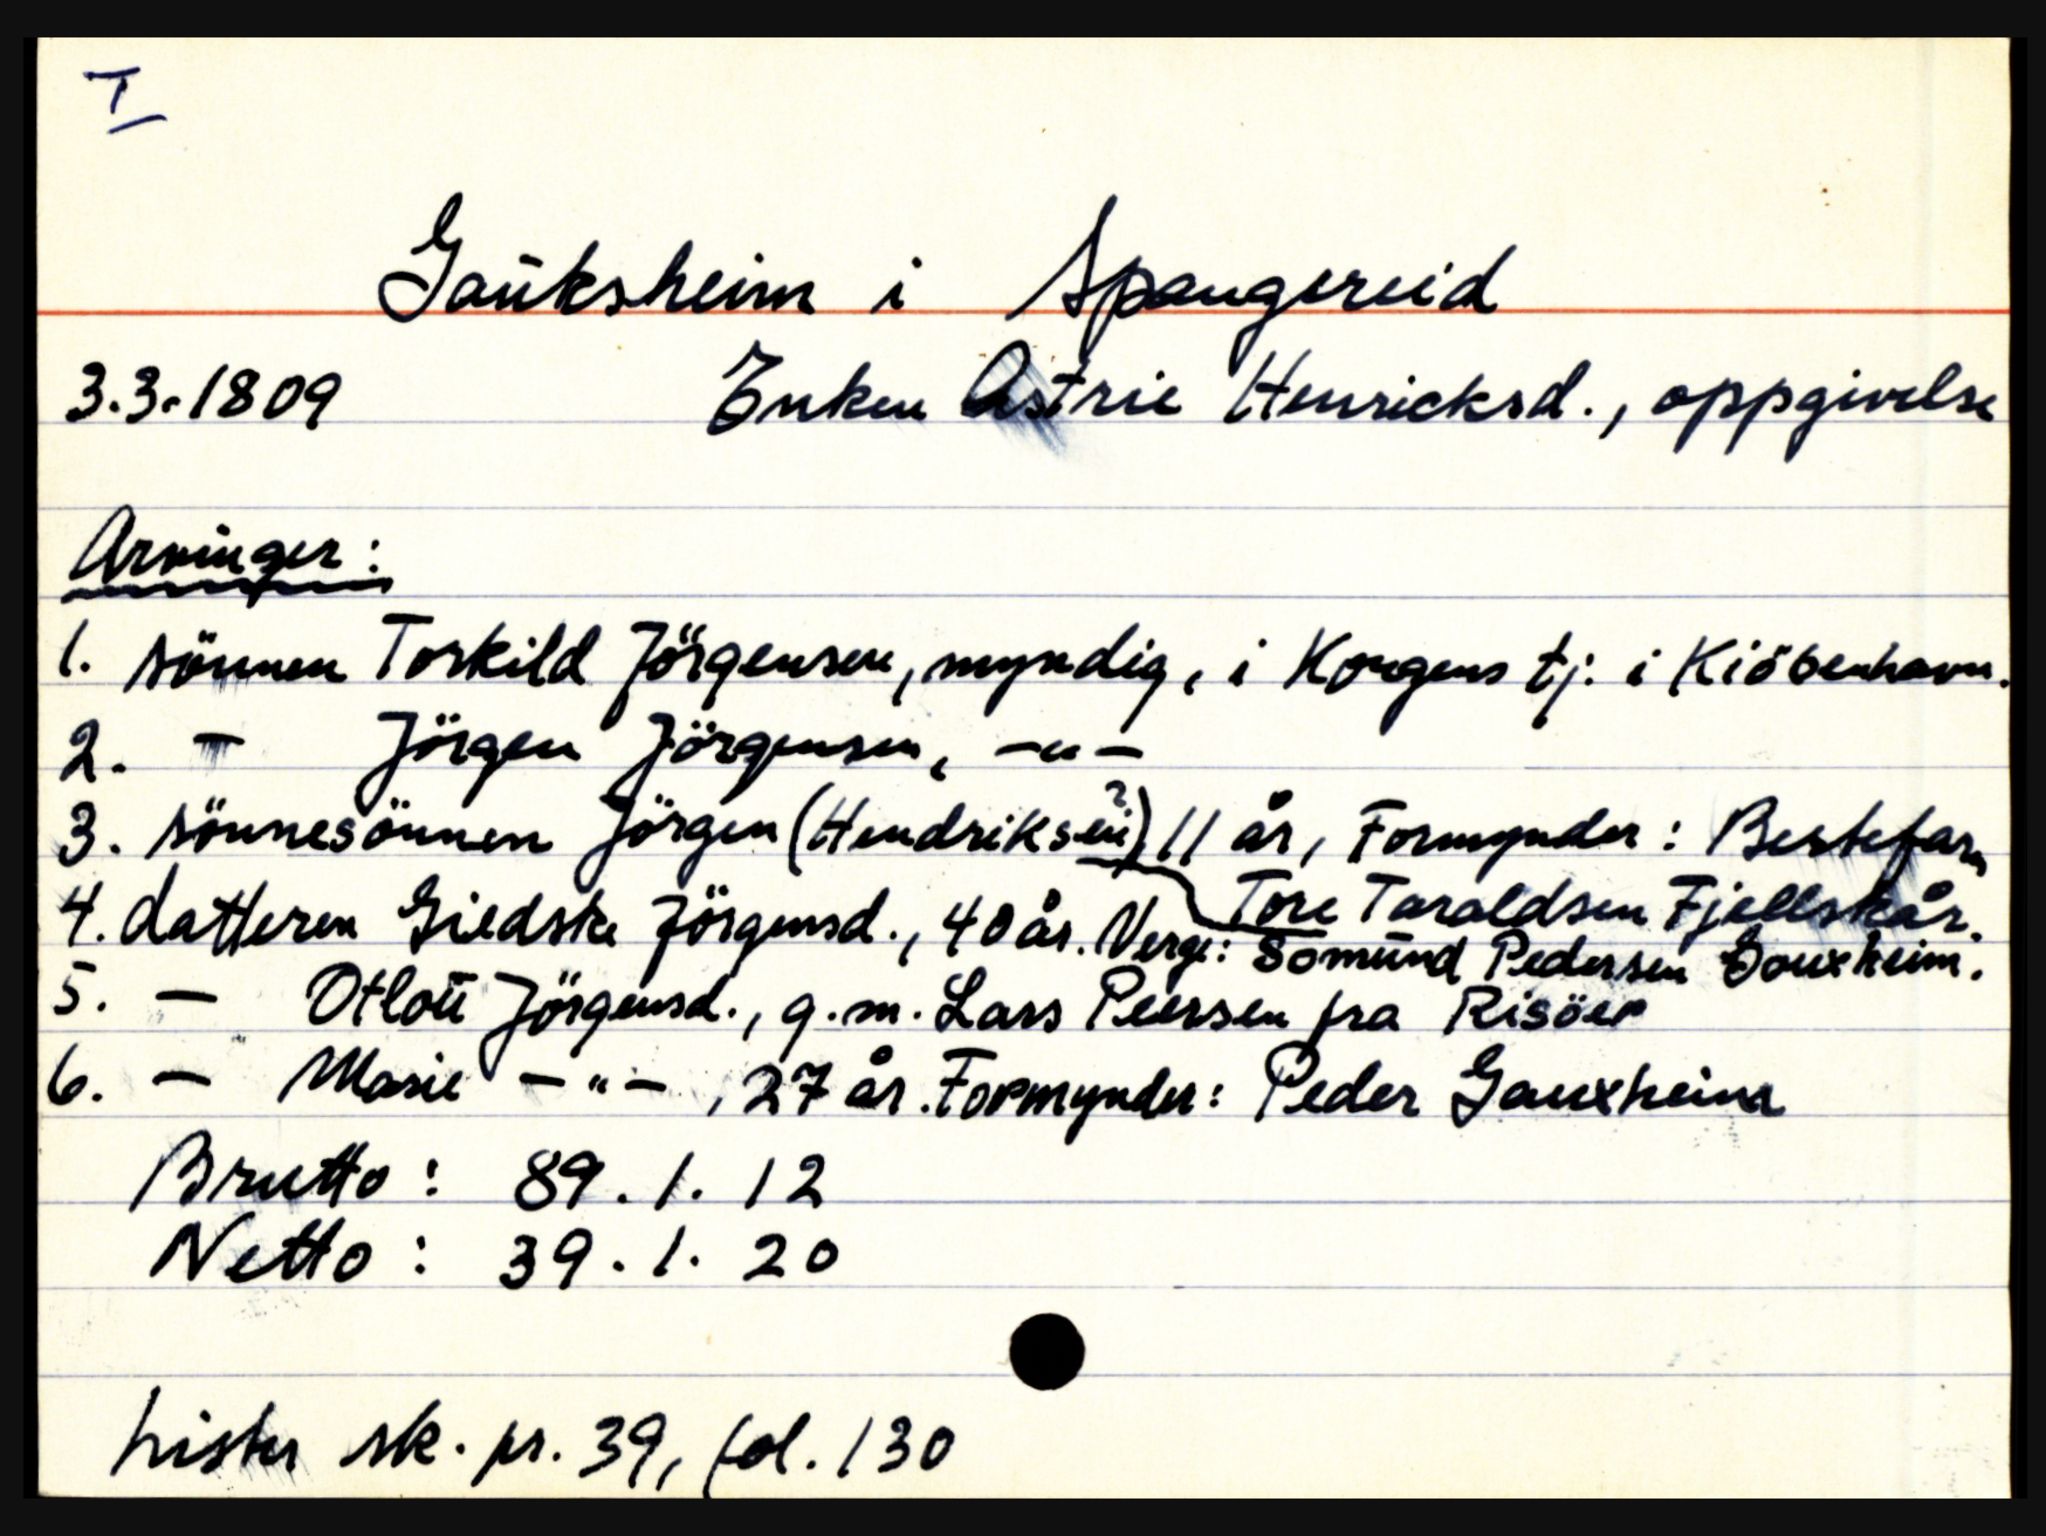 I
Gaüksheim i Spangereid
3.3.1809 Enken Astrie Henricksd., oppgivelse
Arvinger:
1. sönnen Torkild Jörgensen, myndig, i Kongens tj. i Kiöbenhavn.
2. — Jörgen Jörgensen, —"—
3. sönnesönnen Jörgen (Hendriksen?) 11 år, Formynder: Bestefar,
Tore Taraldsen Fjellskår.
4. datteren Giedske Jörgensd., 40 år. Verge: Somund Pedersen Gouxheim.
5. — Otloü Jörgensd., g.m. Lars Peersen fra Risöer
6. — Marie —"—, 27 år. Formynder: Peder Gauxheim
Brutto: 89.1.12
Netto: 39.1.20
Lister sk. pr. 39, fol. 130